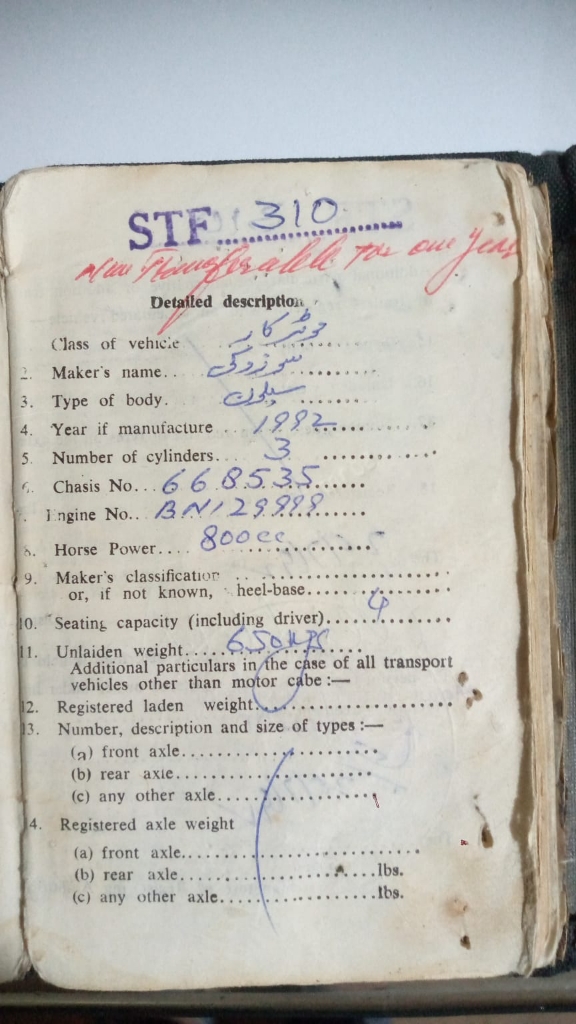 STF 310
Non Transferable for one year
Detailed description
Class of vehicle موٹر کار
2. Maker's name.. سوزوکی
3. Type of body. سیلون
4. Year if manufacture ... 1992
5. Number of cylinders.... 3
6. Chasis No... 668535
Engine No.. BN129999
8. Horse Power.... 800cc
9. Maker's classification
or, if not known, heel-base
10. Seating capacity (including driver) 4
11. Unlaiden weight..... 650
Additional particulars in the case of all transport
vehicles other than motor cabe :—
12. Registered laden weight
13. Number, description and size of types :—
(a) front axle
(b) rear axie
(c) any other axle
4. Registered axle weight
(a) front axle
(b) rear axle lbs.
(c) any other axle lbs.